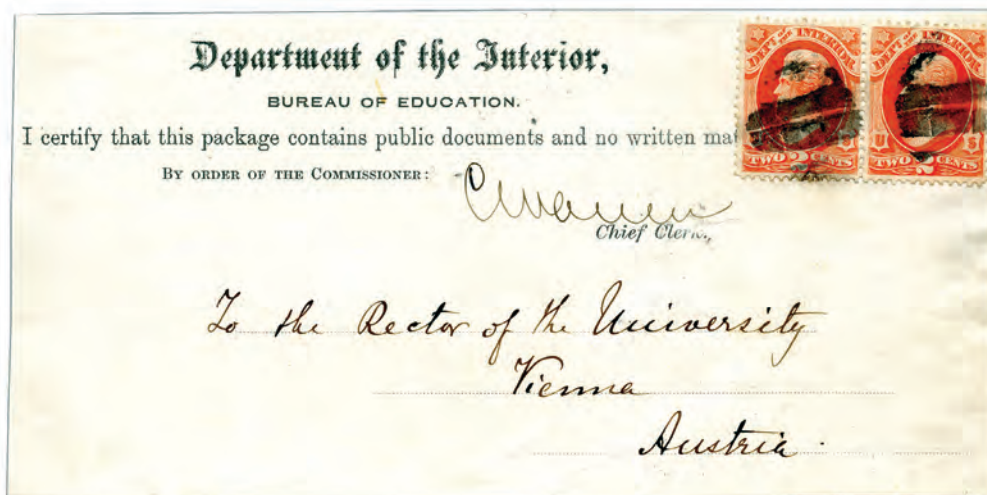 Department of the Interior,
BUREAU OF EDUCATION.
I certify that this package contains public documents and no written
BY ORDER OF THE COMMISSIONER:
Chief Clerk.
To the Rector of the University
Vienna
Austria.
DEPT. OF INTERIOR
U S
TWO 2 CENTS
DEPT. OF INTERIOR
U S
TWO 2 CENTS